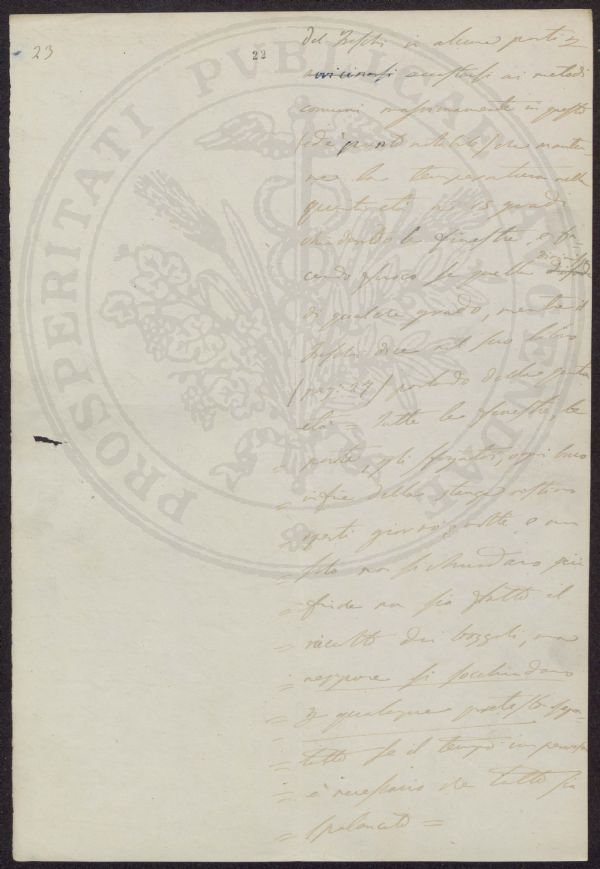 23
22
del Freschi in alcune parti p
avvicinarsi accostarsi ai metodi
comuni massimamente in questo
(ed è punto notabile) che mante-
ne la temperatura nella
quinta età a 18 gradi
chiudendo le finestre, e fa-
cendo fuoco se quella
di qualche grado, mentre il
Freschi dice nel suo libro
(pag. 27) parlando della quinta
età = tutte le finestre, le
= porte, gli sfogatoi, ogni buco
= infine della stanza restino
= aperti giorno e notte, e non
= solo non si chiudano più
= finchè non sia fatto il
= raccolto dei bozzoli, ma
= neppure si socchiudano
= p qualunque pretesto sopra
= tutto se il tempo imperversa
= è necessario che tutto sia
= spalancato =
PROSPERITATI PVBLICAE AVGENDAE